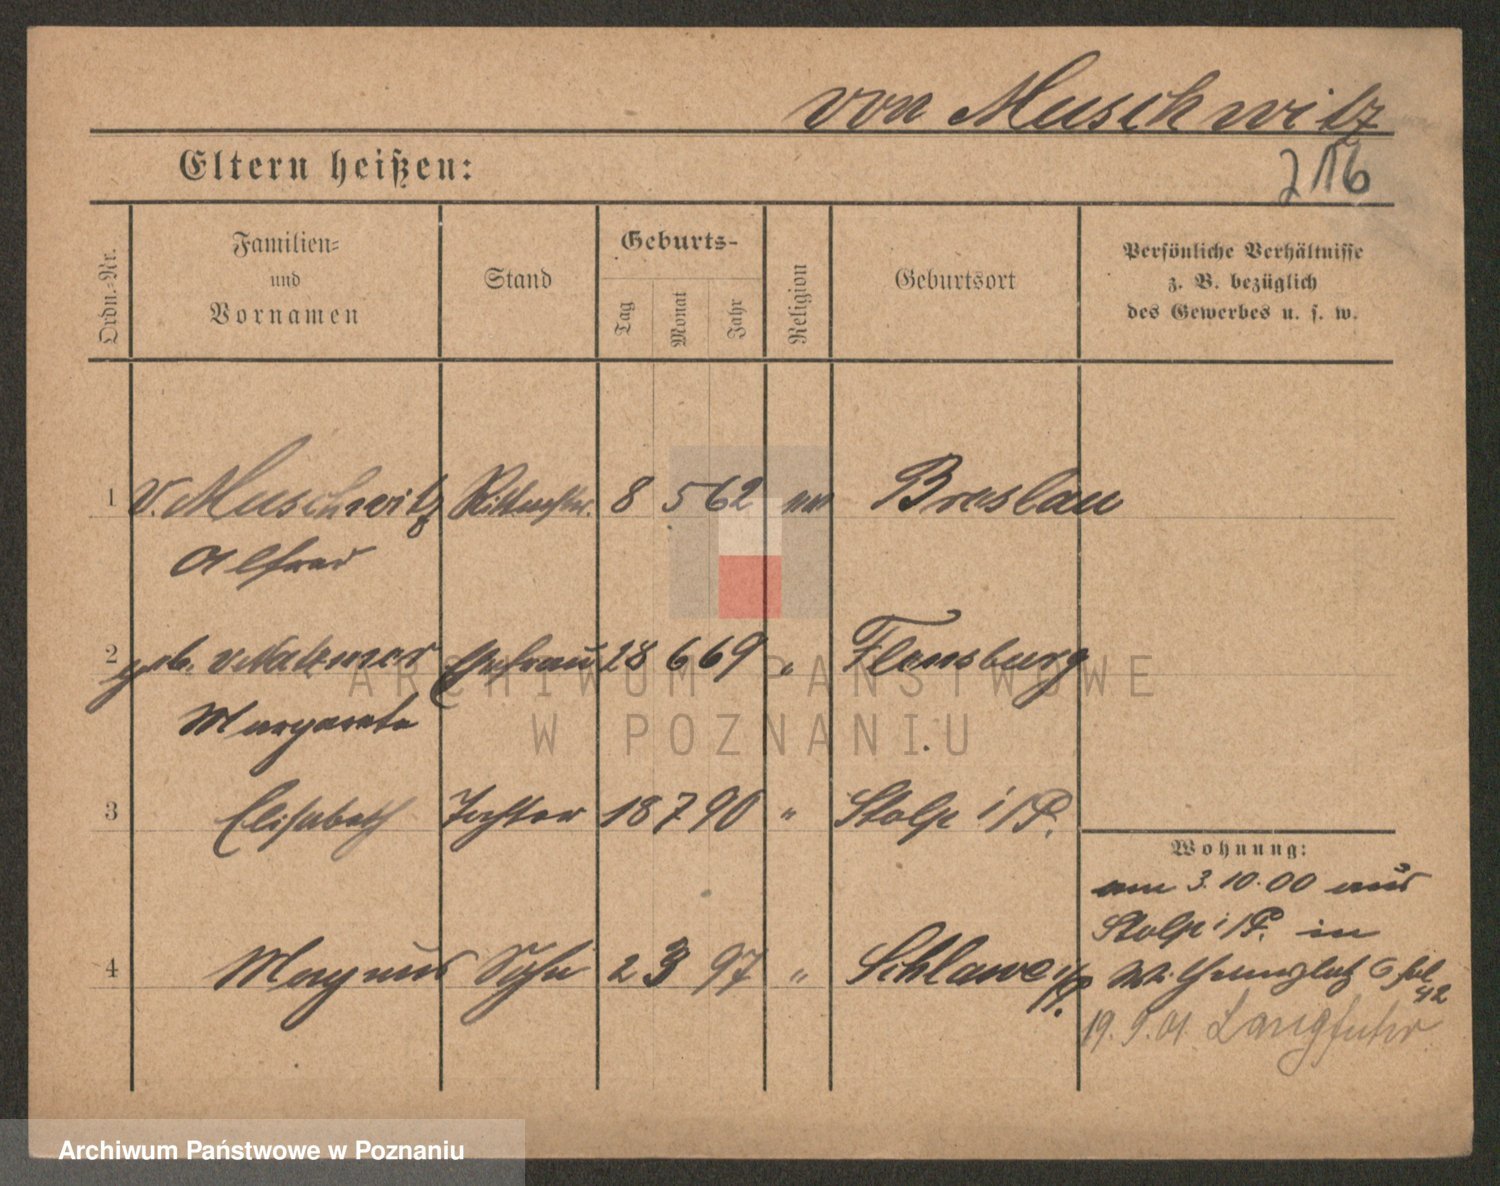 von Muschwitz
Eltern heißen:
216
Ordn.-Nr.
Familien-
und
Vornamen
Stand
Geburts-
Tag
Monat
Jahr
Religion
Geburtsort
Persönliche Verhältnisse
z. B. bezüglich
des Gewerbes u. s. w.
1 v. Muschwitz Rittmstr. 8 5 62 Breslau
Alfred
2 geb. Ehefrau 28 6 69 " Flensburg
Margarete
3 Elisabeth Tochter 18 7 90 " Stolp i/P.
Wohnung:
am 3.10.00 aus
Stolp i/P. in
4 Magnus Sohn 2 3 97 " Schlawe i/P.
6
42
19.9.01 Langfuhr
ARCHIWUM PAŃSTWOWE
W POZNANIU
Archiwum Państwowe w Poznaniu